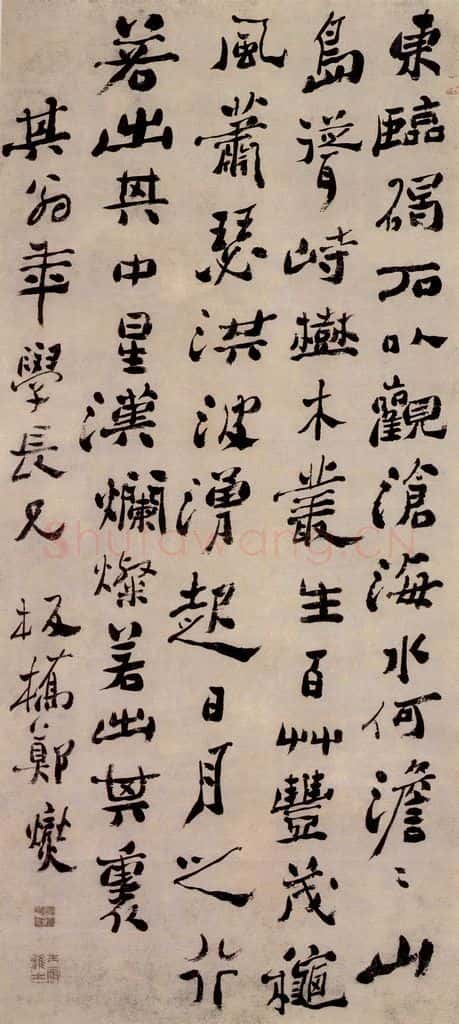 東臨碣石以觀滄海水何澹〻山
島聳峙樹木叢生百艸豐茂穐
風蕭瑟洪波湧起日月之行
若出其中星漢爛燦若出其裏
其翁年學長兄 板橋鄭燮
Shufawang.CN